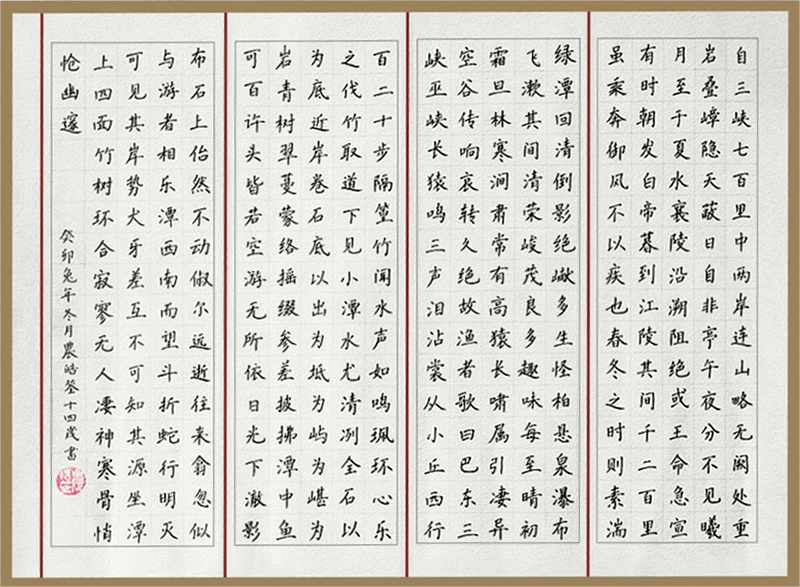 自三峡七百里中两岸连山略无阙处重
岩叠嶂隐天蔽日自非亭午夜分不见曦
月至于夏水襄陵沿溯阻绝或王命急宣
有时朝发白帝暮到江陵其间千二百里
虽乘奔御风不以疾也春冬之时则素湍
绿潭回清倒影绝巘多生怪柏悬泉瀑布
飞漱其间清荣峻茂良多趣味每至晴初
霜旦林寒涧肃常有高猿长啸属引凄异
空谷传响哀转久绝故渔者歌曰巴东三
峡巫峡长猿鸣三声泪沾裳从小丘西行
百二十步隔篁竹闻水声如鸣珮环心乐
之伐竹取道下见小潭水尤清冽全石以
为底近岸卷石底以出为坻为屿为嵁为
岩青树翠蔓蒙络摇缀参差披拂潭中鱼
可百许头皆若空游无所依日光下澈影
布石上佁然不动俶尔远逝往来翕忽似
与游者相乐潭西南而望斗折蛇行明灭
可见其岸势犬牙差互不可知其源坐潭
上四面竹树环合寂寥无人凄神寒骨悄
怆幽邃
癸卯兔年冬月農皓荃十四歲書